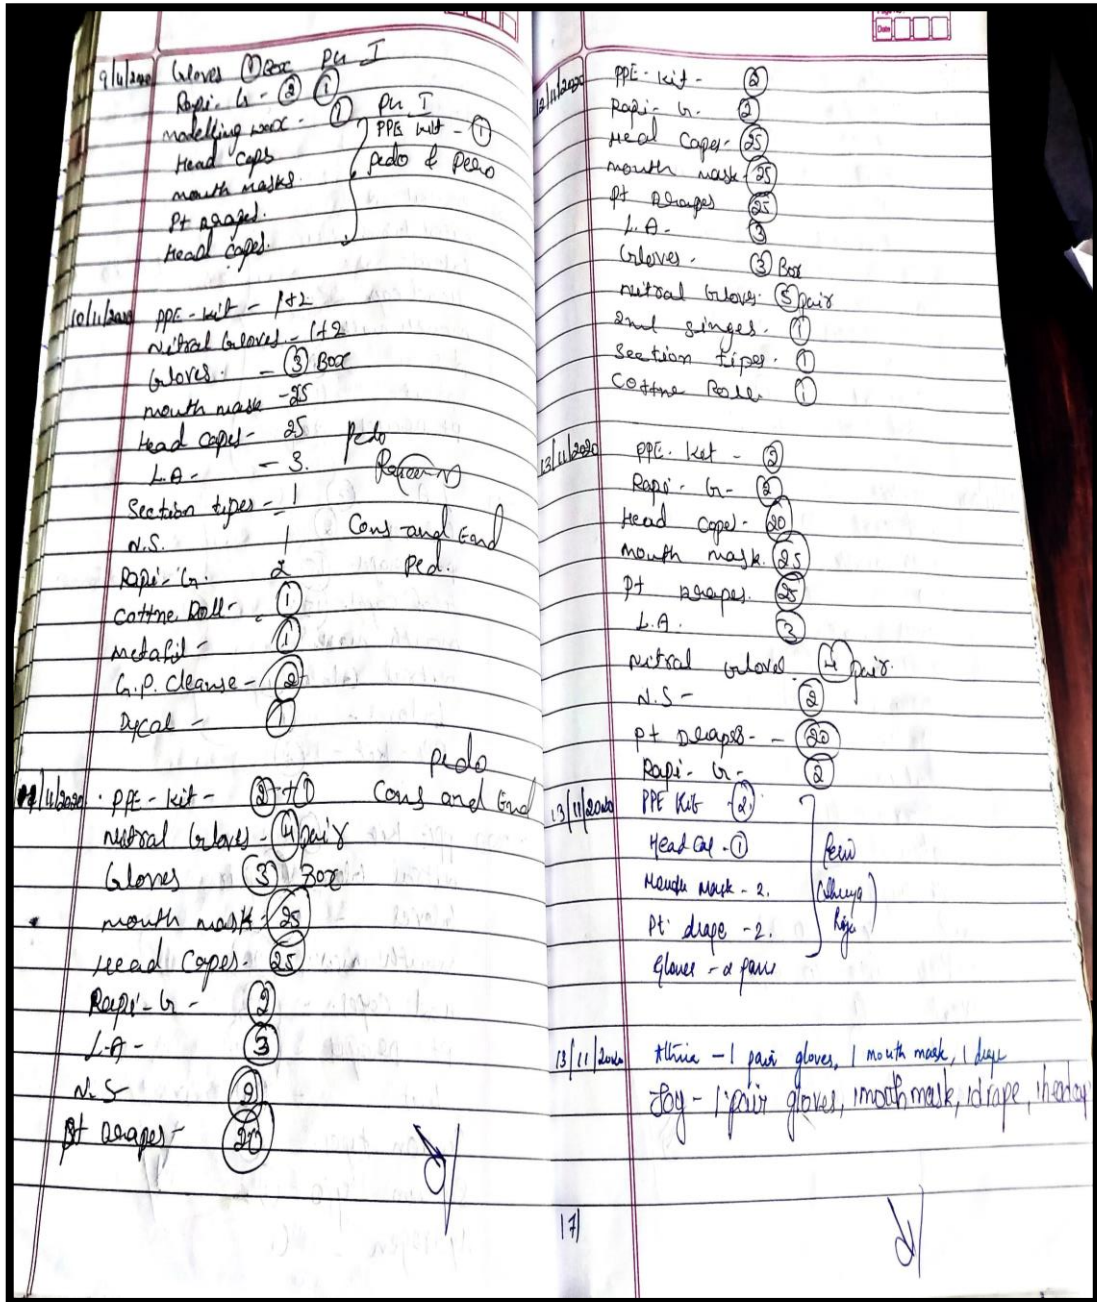 9/11/2020 Gloves ① Box PU I
Rapi-G - ② ①
modelling wax - ① PU I
Head Caps PPE kit - ①
mouth masks. pedo & Pedo
Pt Drapes.
Head Capes.
10/11/2020 PPE - kit - 1+2
Nitral Gloves - 1+2
Gloves. - ③ Box
mouth mask - 25
Head capes - 25 Pedo
L.A - - 3.
Section tipes - 1
N.S. 1 Cons and End
Rapi-G. 2 Ped.
Cottne Roll - ①
Metafil - ①
G.P. Cleanse - ②
Dycal - ①
Pedo
11/2020 PPE - kit - ②+① Cons and End
Nitral Gloves - ④ pair
Gloves ③ Box
mouth mask - ㉕
Head Capes - ㉕
Rapi-G - ②
L.A - ③
N.S ②
Pt Drapes - ⑳
Date
12/11/2020 PPE - kit - ②
Rapi-G. ②
Head Capes - ㉕
mouth mask - ㉕
Pt Drapes ㉕
L.A. ③
Gloves. ③ Box
Nitral Gloves. ⑤ pair
2ml singes. ①
Section tipes. ①
Cottne Roll. ①
13/11/2020 PPE. Ket - ②
Rapi-G - ②
Head Capes - ⑳
mouth mask. ㉕
Pt Drapes. ㉕
L.A. ③
Nitral Gloves ④ pair.
N.S - ②
Pt Drapes - - ⑳
Rapi-G - ②
13/11/2020 PPE Kit - ②
Head Cap - ①
Mouth Mask - 2.
Pt drape - 2.
Gloves - 2 pairs
13/11/2020 - 1 pair gloves, 1 mouth mask, 1 drape
Joy - 1 pair gloves, 1 moothmask, 1 drape, 1 headcap
171